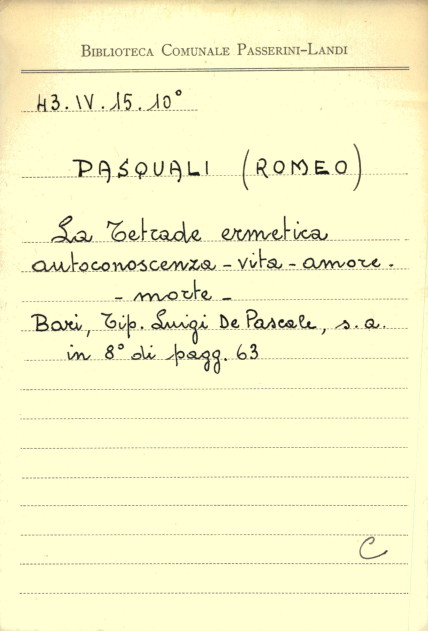 BIBLIOTECA COMUNALE PASSERINI-LANDI
43.IV.15.10°
PASQUALI (ROMEO)
La Tetrade ermetica
autoconoscenza - vita - amore -
- morte -
Bari, Tip. Luigi De Pascale, s.a.
in 8° di pagg. 63
C